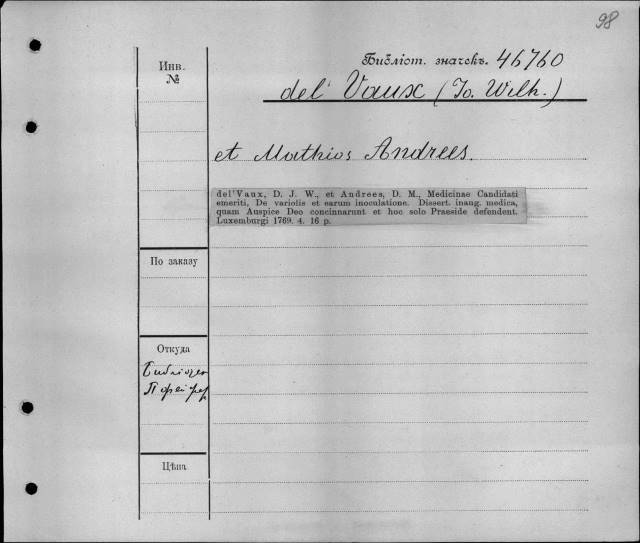 98
Инв. №
Библіот. значекъ. 46760
del' Vaux (Jo. Wilh.)
et Mathias Andrees.
del'Vaux, D. J. W., et Andrees, D. M., Medicinae Candidati
emeriti, De variolis et earum inoculatione. Dissert. inaug. medica,
quam Auspice Deo concinnarunt et hoc solo Praeside defendent.
Luxemburgi 1769. 4. 16 p.
По заказу
Откуда
Цѣна